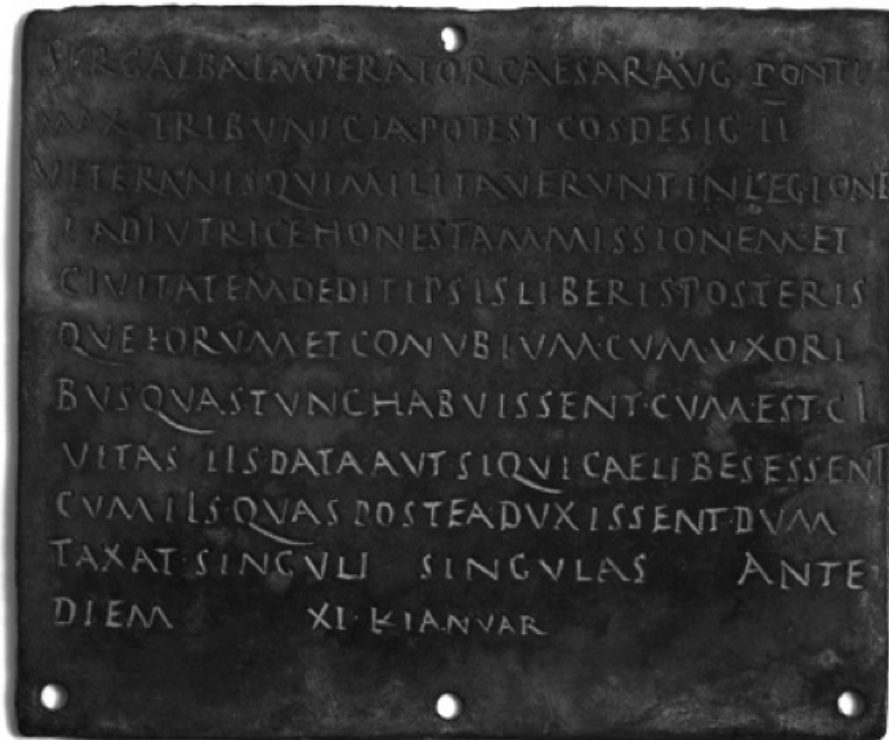 SERGALBAIMPERATORCAESARAVG PONTIF
MAX TRIBVNICIAPOTEST·COSDESIG·II
VETERANISQVIMILITAVERVNTINLEGIONE
I ADIVTRICEHONESTAMMISSIONEM·ET
CIVITATEMDEDITIPSISLIBERISPOSTERIS
QVEEORVMETCONVBIVM·CVM·VXORI
BVSQVASTVNCHABVISSENT·CVM·EST·CI
VITAS IIS·DATAAVTSIQVICAELIBES·ESSENT
CVMIIS·QVASPOSTEADVXISSENT·DVM
TAXAT·SINGVLI SINGVLAS ANTE
DIEM XI·KIANVAR